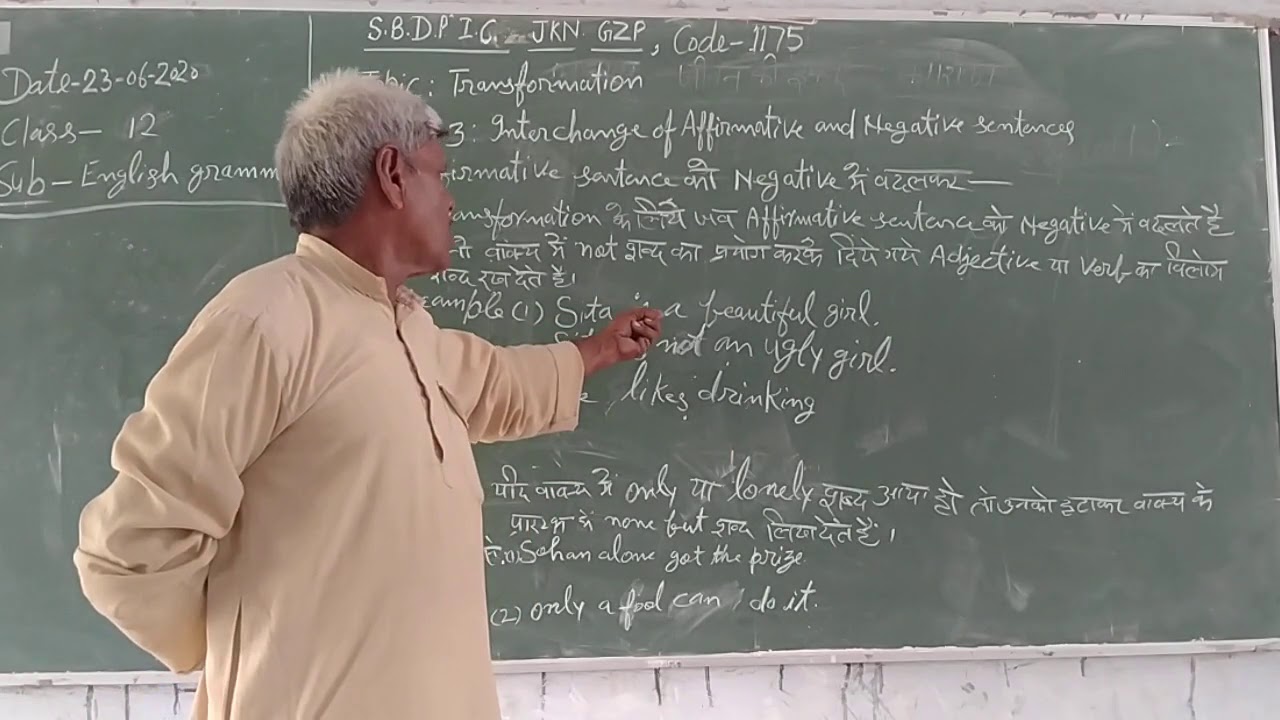 S.B.D.P I.C. JKN. GZP, Code-1175
Date-23-06-2020
Class- 12
Sub- English gramm
Topic: Transformation
3: Interchange of Affirmative and Negative sentences
irmative sentence को Negative में बदलकर —
ansformation के लिये जब Affirmative sentence को Negative में बदलते है
तो वाक्य में not शब्द का प्रयोग करके दिये गये Adjective या Verb का विलोम
शब्द रख देते है।
Example (1) Sita is a beautiful girl.
not an ugly girl.
likes drinking
यदि वाक्य में only या lonely शब्द आया हो तो उनको हटाकर वाक्य के
प्रारम्भ में none but शब्द लिख देते हैं।
Sohan alone got the prize
(2) only a fool can do it.